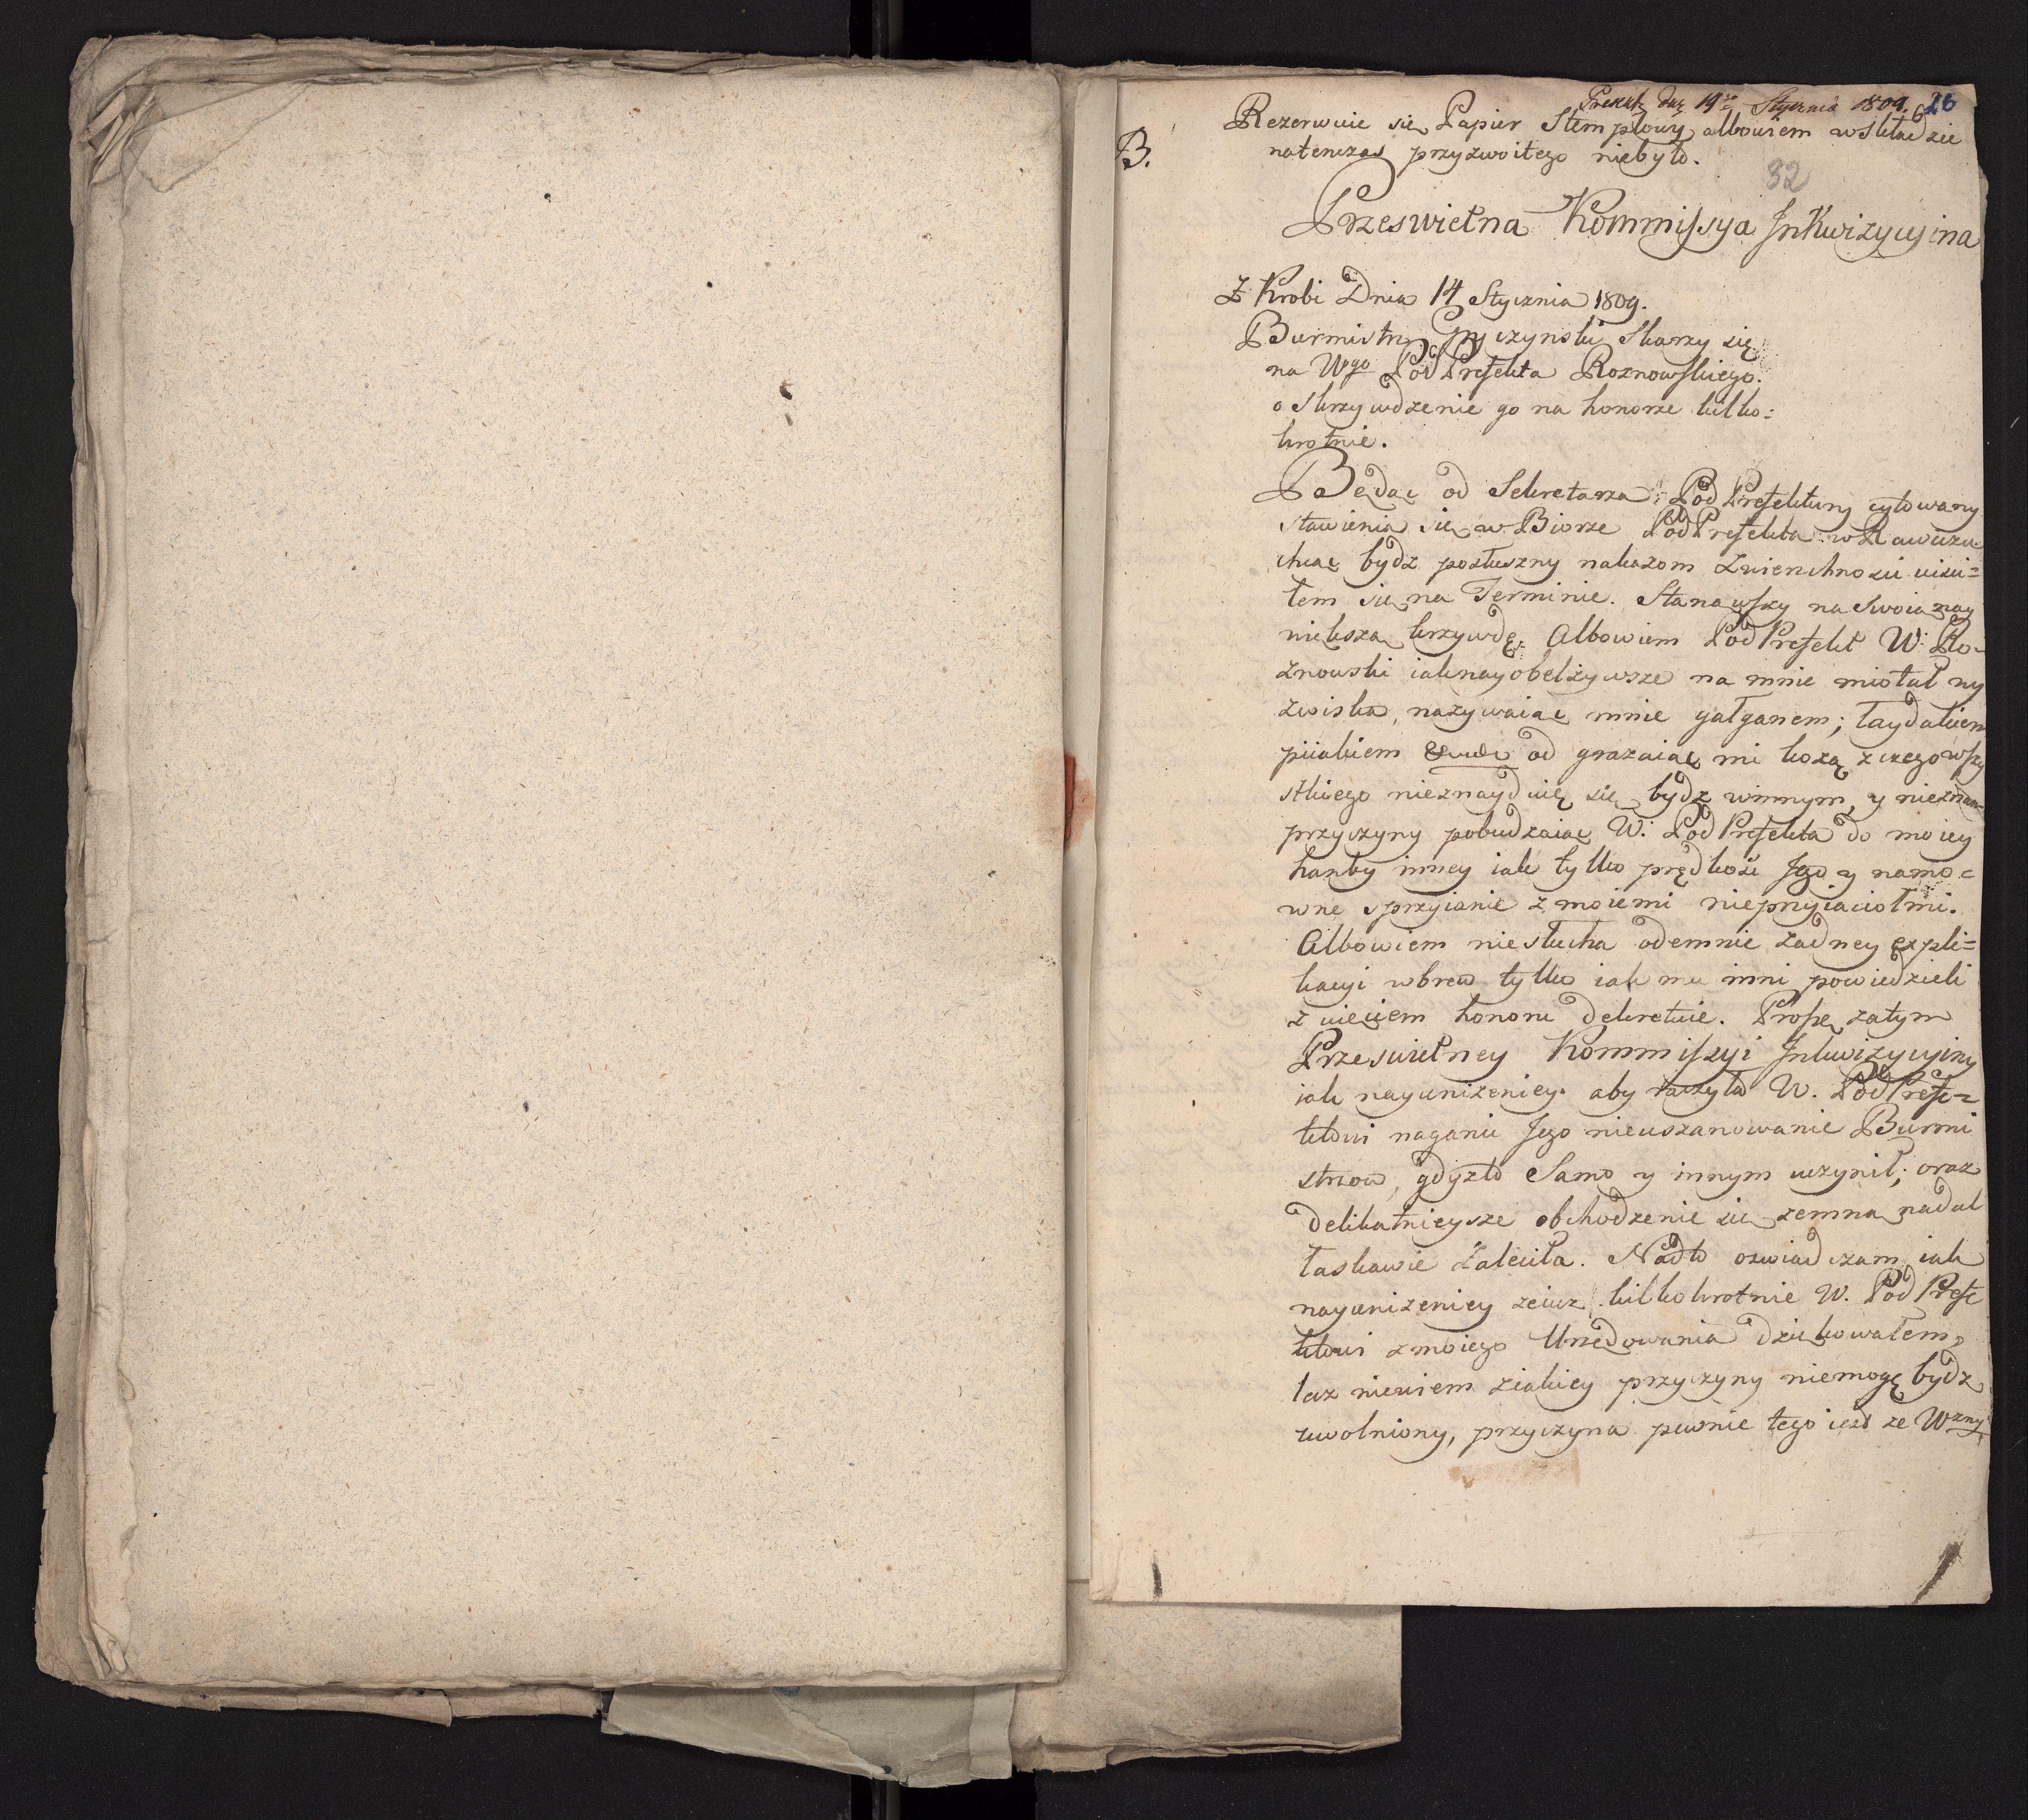 19 Stycznia 1809. 26
Rezerwuie się Papier Stemplowy albowiem w Składzie
B.
natenczas przyzwoitego niebyło.
32
Przeswietna Kommissya Jnkwizycyina
Z Krobi Dnia 14 Stycznia 1809.
Burmistrz Skarzy się
na Wgo PodPrefekta Roznowskiego.
o Skrzywdzenie go na honorze kilko=
krotnie.
Będąc od Sekretarza PodPrefektury cytowany
stawienia się w Biorze PodPrefekta w Rawiczu
chcąc bydz posłuszny nakazom Zwierzchnosci uisci=
łem się na Terminie. Stanąwszy na Swoią nay
niększą krzywdę. Albowiem PodPrefekt W. Ro-
znowski iaknayobelżywsze na mnie miotał ny
zwiska, nazywaiąc mnie gałganem; łaydakiem
piiakiem od grazaiąc mi kozą z czego wszy
stkiego nieznayduię się bydz winnym, y nieznam
przyczyny pobudzaiąc W. PodPrefekta do moiey
hanby inney iak tylko prędkość Jego y namo=
wne sprzyianie z moiemi nieprzyiaciołmi.
Albowiem niesłucha odemnie żadney expli=
kacyi wbrew tylko iak mu inni powiedzieli
z uięciem honoru dekretuie. Proszę zatym
Przeswietney Kommissyi Jnkwizycyiny
iak nayunizeniey. aby raczyła W. PodPrefe=
ktowi naganić Jego nieuszanowanie Burmi
strzow, gdyż to Samo y innym uczynił; oraz
delikatnieysze obchodzenie się zemną nadal
łaskawie Zaleciła. Nadto oswiadczam iak
nayunizeniey zeiuz kilkokrotnie W. PodPrefe
ktowi z moiego Urzędowania dziękowałem,
lecz niewiem ziakiey przyczyny niemogę bydz
uwolniony, przyczyna pewnie tego iest ze Wzny